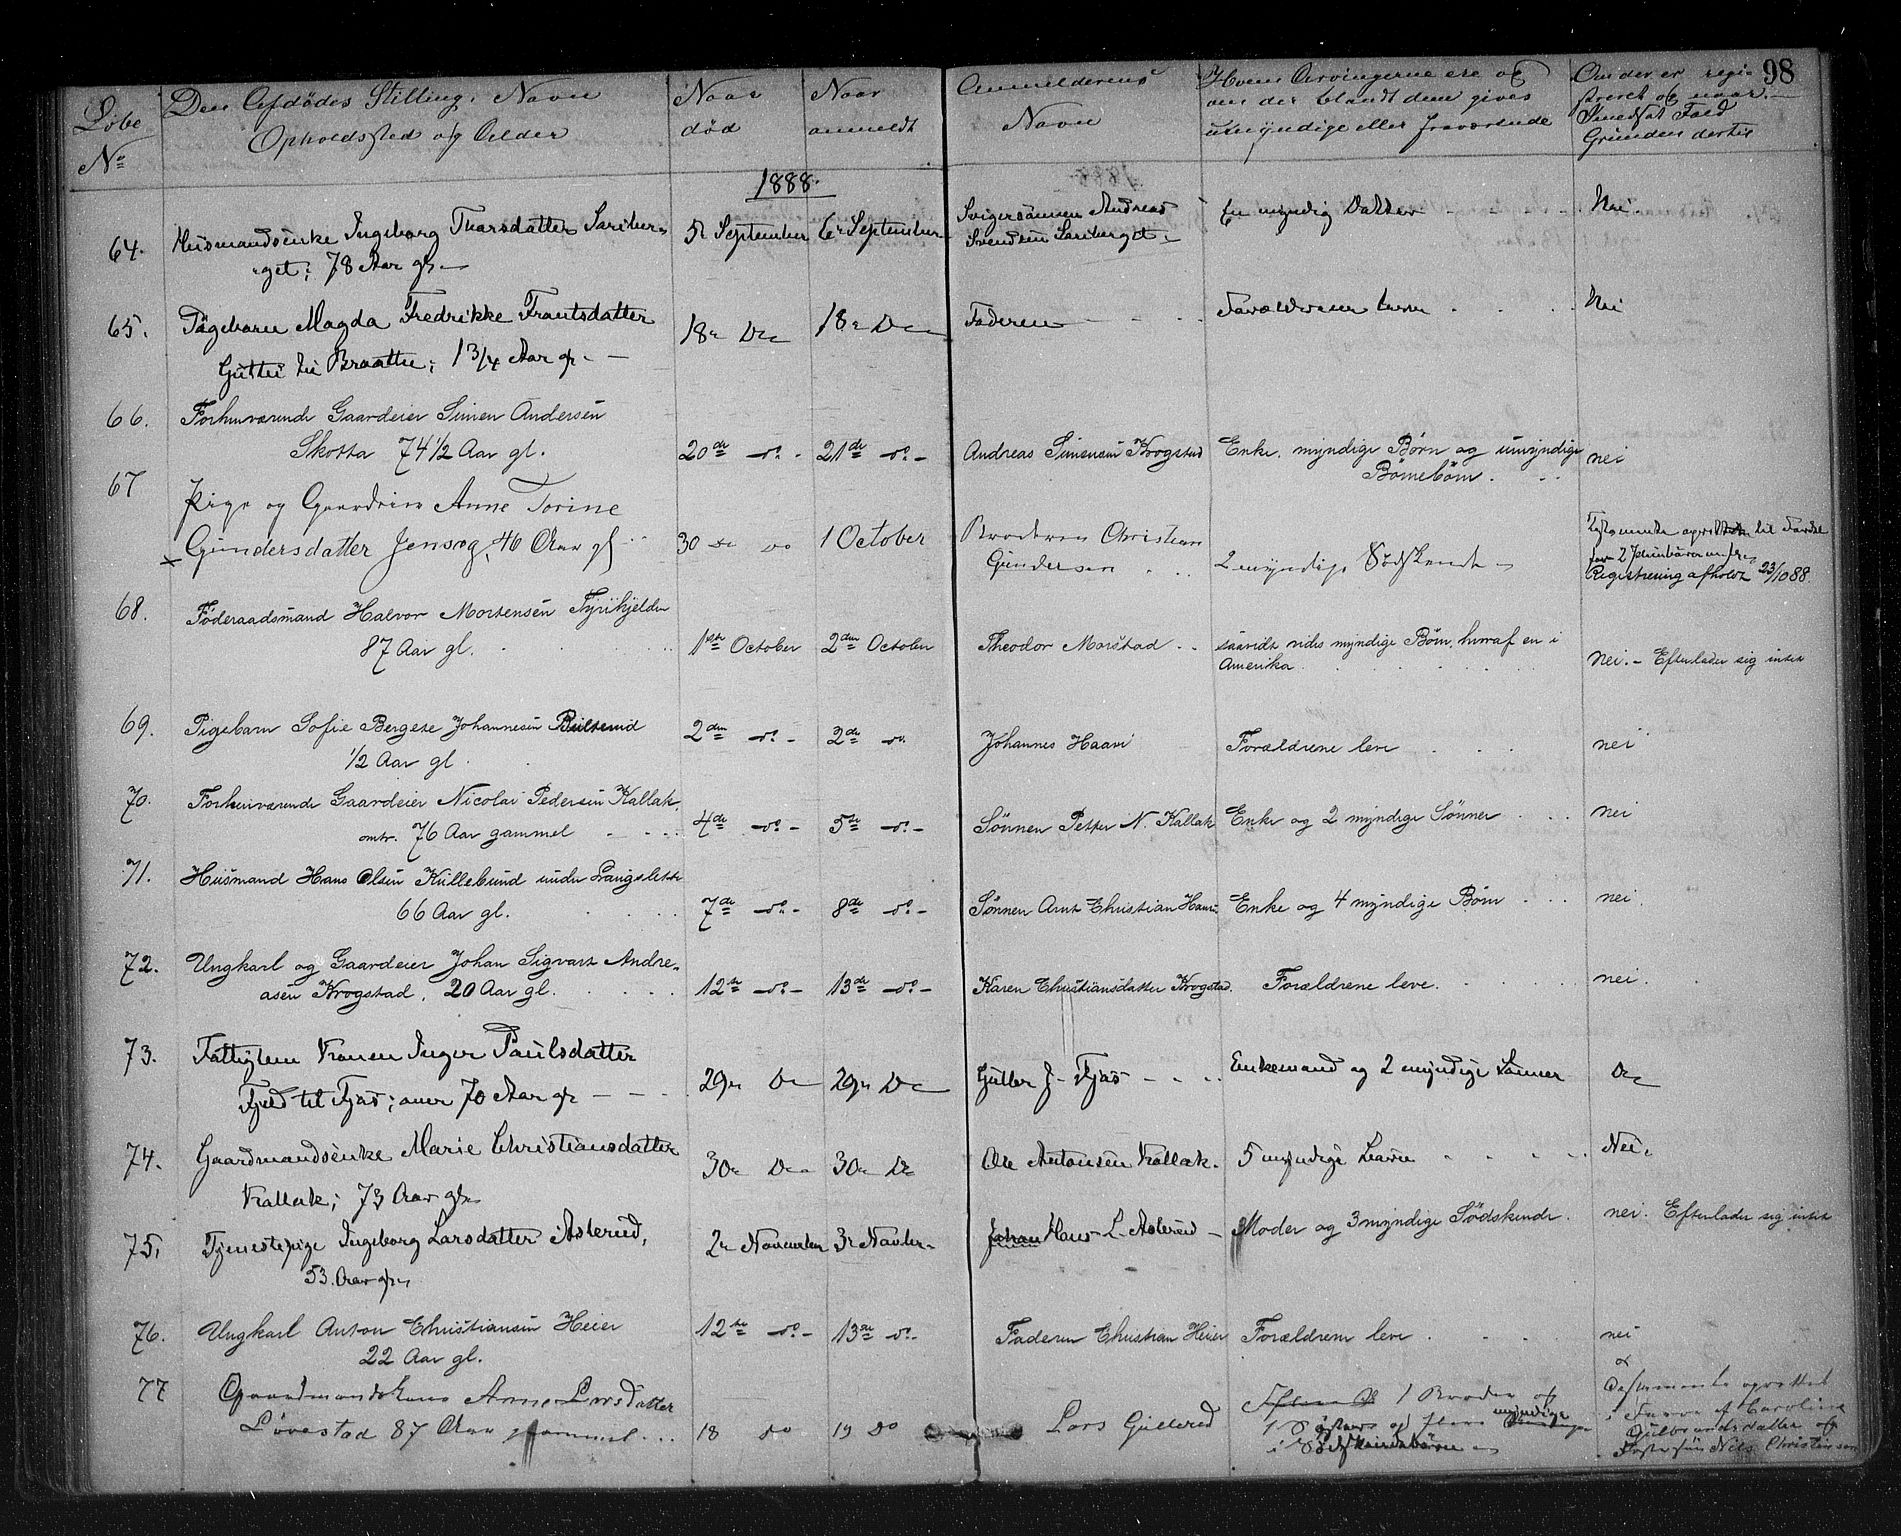 98
Løbe
No
Den Afdødes Stilling, Navn
Opholdssted og Alder
Naar
død
Naar
anmeldt
Anmelderens
Navn
Hvem Arvingerne ere og
om der blandt dem gives
umyndige eller fraværende
Om der er regi-
streret og naar.
I modsat Fald
Grunden dertil
1888.
64. Husmandsenke Ingeborg Thorsdatter
78 Aar gl. 5te September 6te September Svigersønnen Andreas
Svendsen En myndig Datter Nei.
65. Pigebarn Magda Fredrikke Frantsdatter
Braaten; 1 3/4 Aar gl. 18de Do 18de Do Faderen Forældrene leve Nei
66. Forhenværende Gaardeier Simen Andersen
Skotta 74 1/2 Aar gl. 20de do - 21de do - Andreas Simensen Krogstad Enke, myndige Børn og umyndige
Børnebørn. nei
67 Pige og Gaardeier Anne Torine
Gundersdatter Jensæg, 46 Aar gl 30 do 1 October Broderen Christian
Gundersen 2 myndige Sødskende
Testamente oprettet til Fordel
for 2
Registrering afholdt 23/10 88.
68. Føderaadsmand Halvor Mortensen Fyrikjelden
87 Aar gl. 1ste October 2den October Theodor Morstad saavidt vides myndige Børn, hvoraf en i
Amerika nei. - Efterlader sig intet
69. Pigebarn Sofie Bergete Johannesen
1/2 Aar gl. 2den do - 2de do Johannes Haavi Forældrene leve nei
70. Forhenværende Gaardeier Nicolai Pedersen Kallak,
omtr. 76 Aar gammel 4de do - 5te do - Sønnen Petter N. Kallak Enke og 2 myndige Sønner nei
71. Husmand Hans Olsen Kullebund under Langslette
66 Aar gl. 7de do - 8de do - Sønnen Arnt Christian Hansen Enke og 4 myndige Børn nei
72. Ungkarl og Gaardeier Johan Sigvart Andre-
asen Krogstad, 20 Aar gl. 12te do - 13de do - Karen Christiansdatter Krogstad. Forældrene leve. nei.
73. Fattiglem Konen Inger Paulsdatter
Fjeld til Fjøs; over 70 Aar gl. 29de Do 29de Do Gutter J. Fjøs Enkemand og 2 myndige Sønner Do
74. Gaardmandsenke Marie Christiansdatter
Kallak; 73 Aar gl. 30te Do 30te Do Ole Antonsen Kallak. 5 myndige Børn Nei.
75. Tjenestepige Ingeborg Larsdatter Aslerud,
53 Aar gl. 2de November 3de Novber Johan Hans L. Aslerud Moder og 3 myndige Sødskende. nei. Efterlader sig intet
76. Ungkarl Anton Christiansen Heier
22 Aar gl. 12te do - 13de do - Faderen Christian Heier Forældrene leve nei
77 Gaardmandskone Anne Larsdatter
Løvestad 87 Aar gammel 18 do 19 do Lars Gullerud
1 Broder og
1 Søster og flere myndige
Sødskendebørn
Testamente oprettet
i Favør af Caroline
Gulbrandsdatter og
Nils Christensen